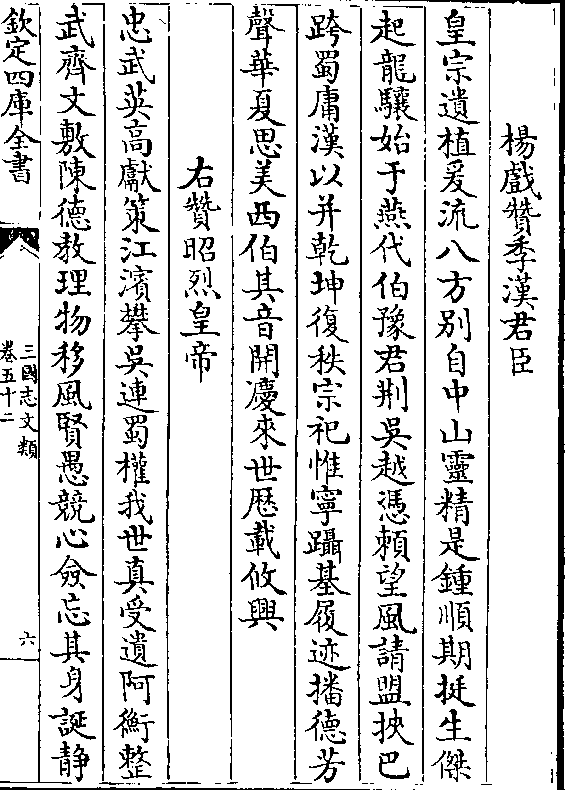 楊戲贊季漢君臣
皇宗遺植爰流八方别自中山靈精是鍾順期挺生傑
起龍驤始于燕代伯豫君荆吳越憑賴望風請盟挾巴
跨蜀庸漢以并乾坤復秩宗祀惟寧躡基履迹播德芳
聲華夏思美西伯其音開慶來世歴載攸興
右贊昭烈皇帝
忠武英高獻策江濱攀吳連蜀權我世真受遺阿衡整
武齊文敷陳德教理物移風賢愚競心僉忘其身誕静
欽定四庫全書
三國志文類
卷五十二
六